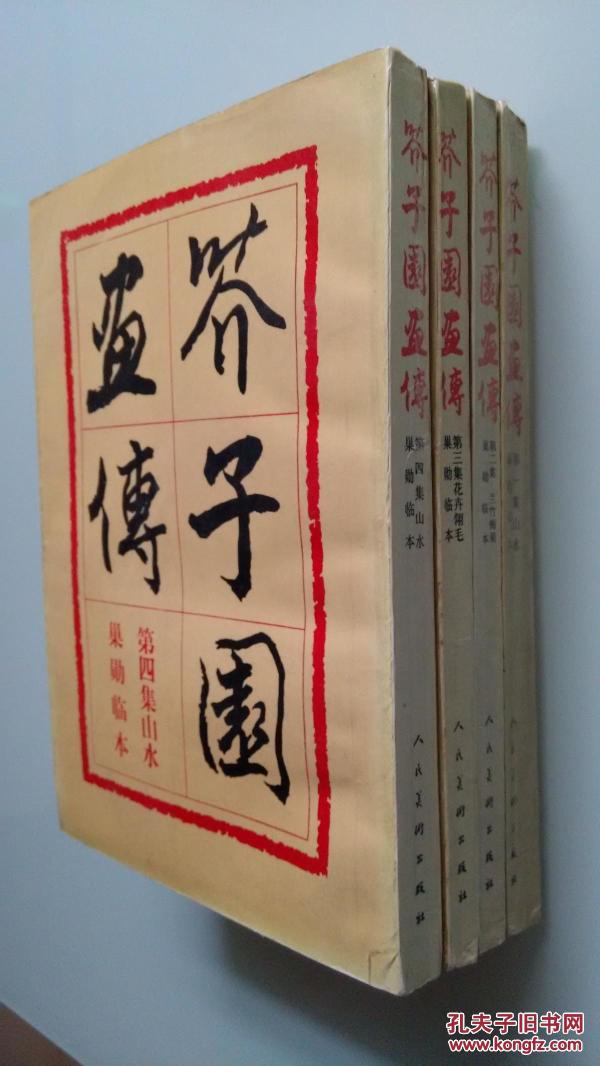 芥子園
畫傳
第四集山水
巢勋临本
芥子園畫傳
第四集山水
巢勋临本
人民美術出版社
芥子園畫傳
第三集花卉翎毛
巢勋临本
人民美術出版社
芥子園畫傳
第二集 兰竹梅菊
巢勋临本
人民美術出版社
芥子園畫傳
集山水
人民美術出版社
孔夫子旧书网
www.kongfz.com